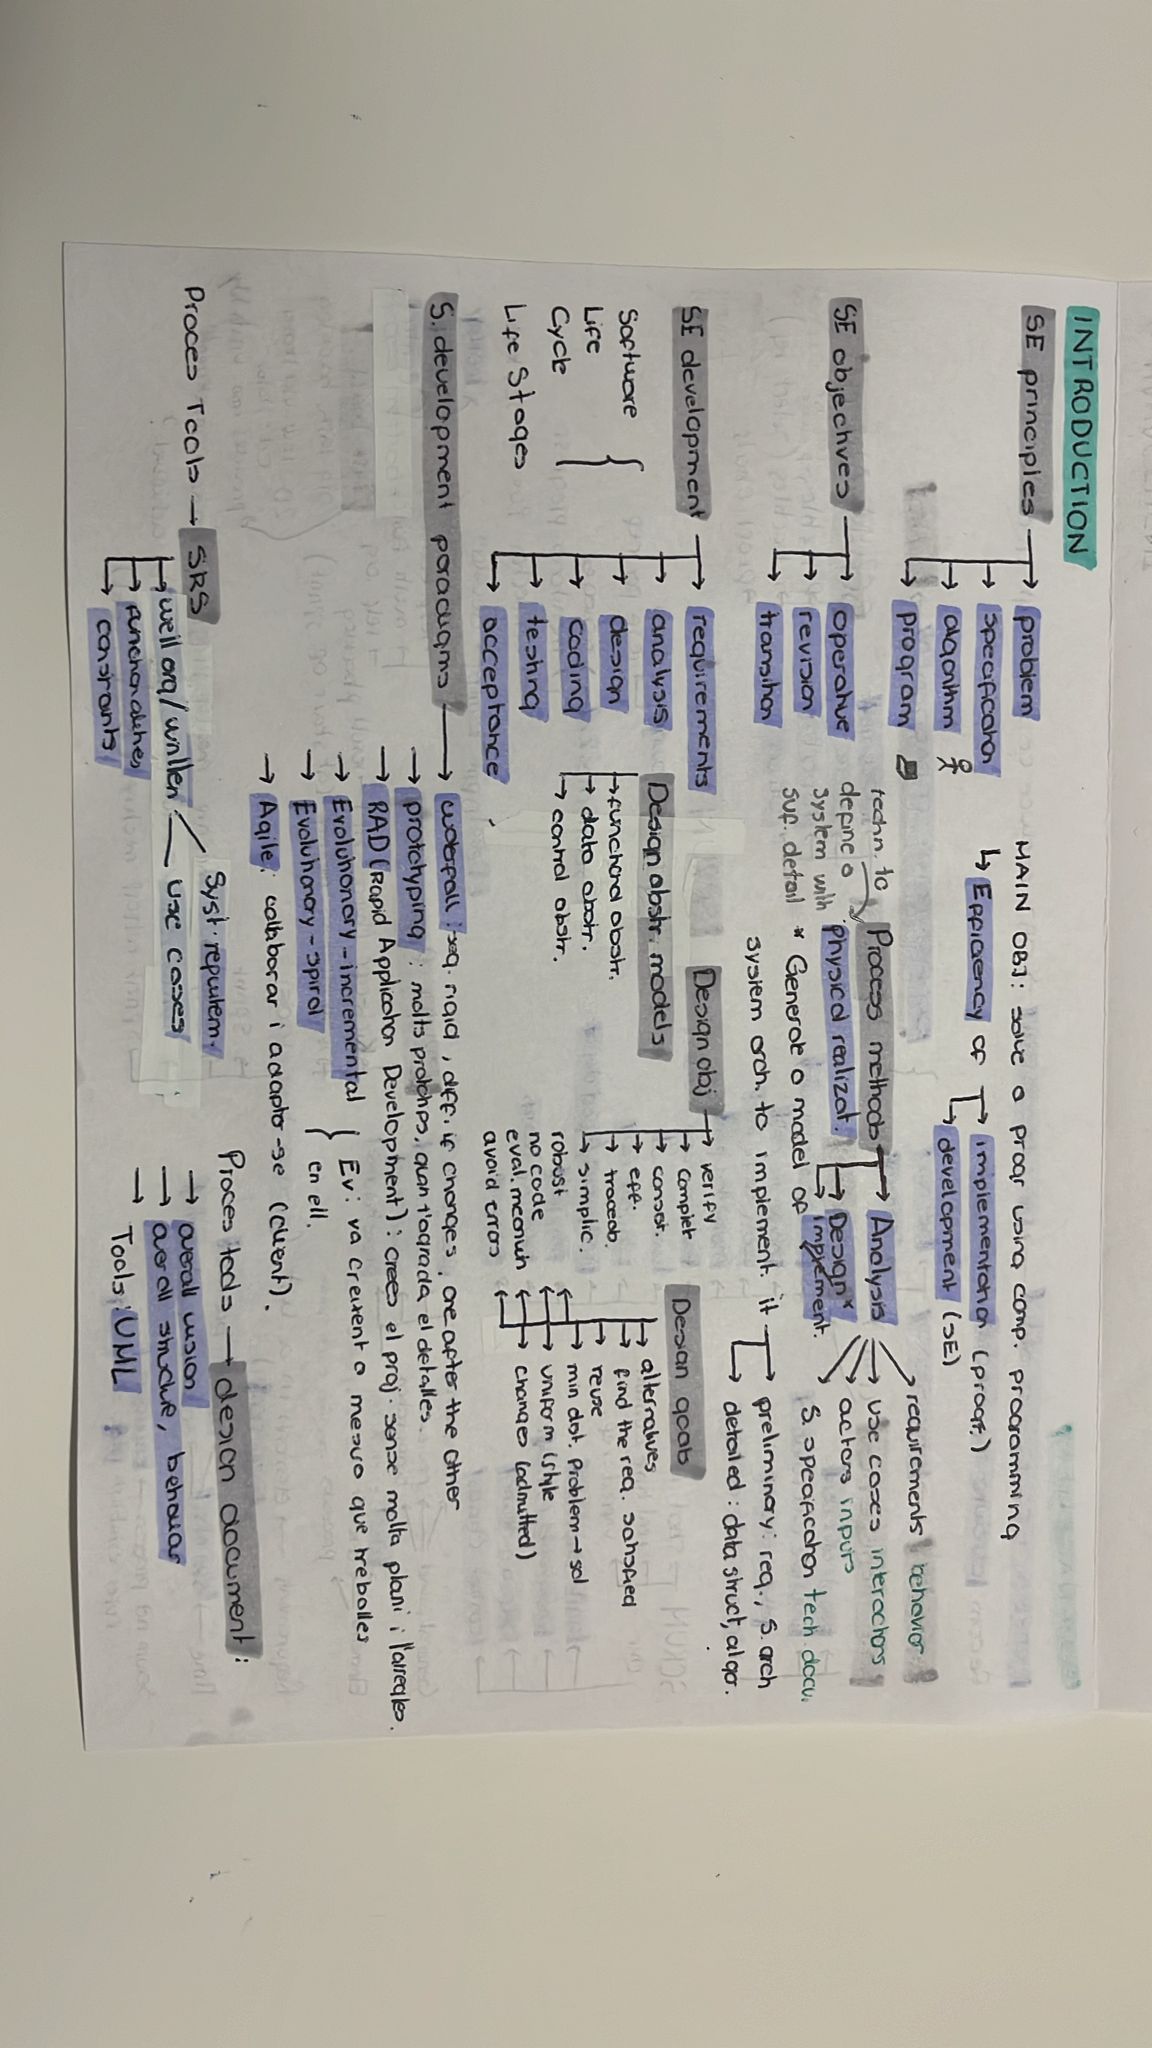 INTRODUCTION
SE principles → problem
→ specification
→ algorithm
→ program
MAIN OBJ: solve a progr using comp. programming
↳ Efficiency of → implementation (progr.)
→ development (SE)
SE objectives → operative
→ revision
→ transition
techn. to
define a
system with
suf. detail
Process methods → Analysis
→ requirements behavior
→ use cases interactions
→ actors inputs
→ S. specification tech. docu.
physical realizat.
→ Design*
→ implement.
* Generate a model of
system arch. to implement it → preliminary: req., s. arch
→ detailed: data struct, algor.
SE development → requirements
→ analysis
→ design
→ coding
→ testing
→ acceptance
Software
Life
Cycle
Life Stages
Design abstr. models
→ functional abstr.
→ data abstr.
→ control abstr.
Design obj → verify
→ complet
→ consist.
→ eff.
→ traceab.
→ simplic.
robust
no code
eval. mecanism
avoid errors
Design goals
→ alternatives
→ find the req. satisfied
→ reuse
→ min dist. problem → sol
→ uniform (style
→ changes (admitted)
S. development paradigms → waterfall: seq. rigid, diff. if changes, one after the other
→ prototyping: molts prototips, quan t'agrada el detalles.
→ RAD (Rapid Application Development): crees el proj. sense molta plani i l'arregles.
→ Evolutionary-incremental } Ev: va creixent a mesura que treballes
→ Evolutionary-spiral } en ell.
→ Agile: collaborar i adaptar-se (client).
Proces Tools → SRS
→ well org/written
→ functionalities
→ constraints
Syst. requirem.
use cases
Proces tools → design document:
→ overall vision
→ overall structure, behaviar
→ Tools: UML